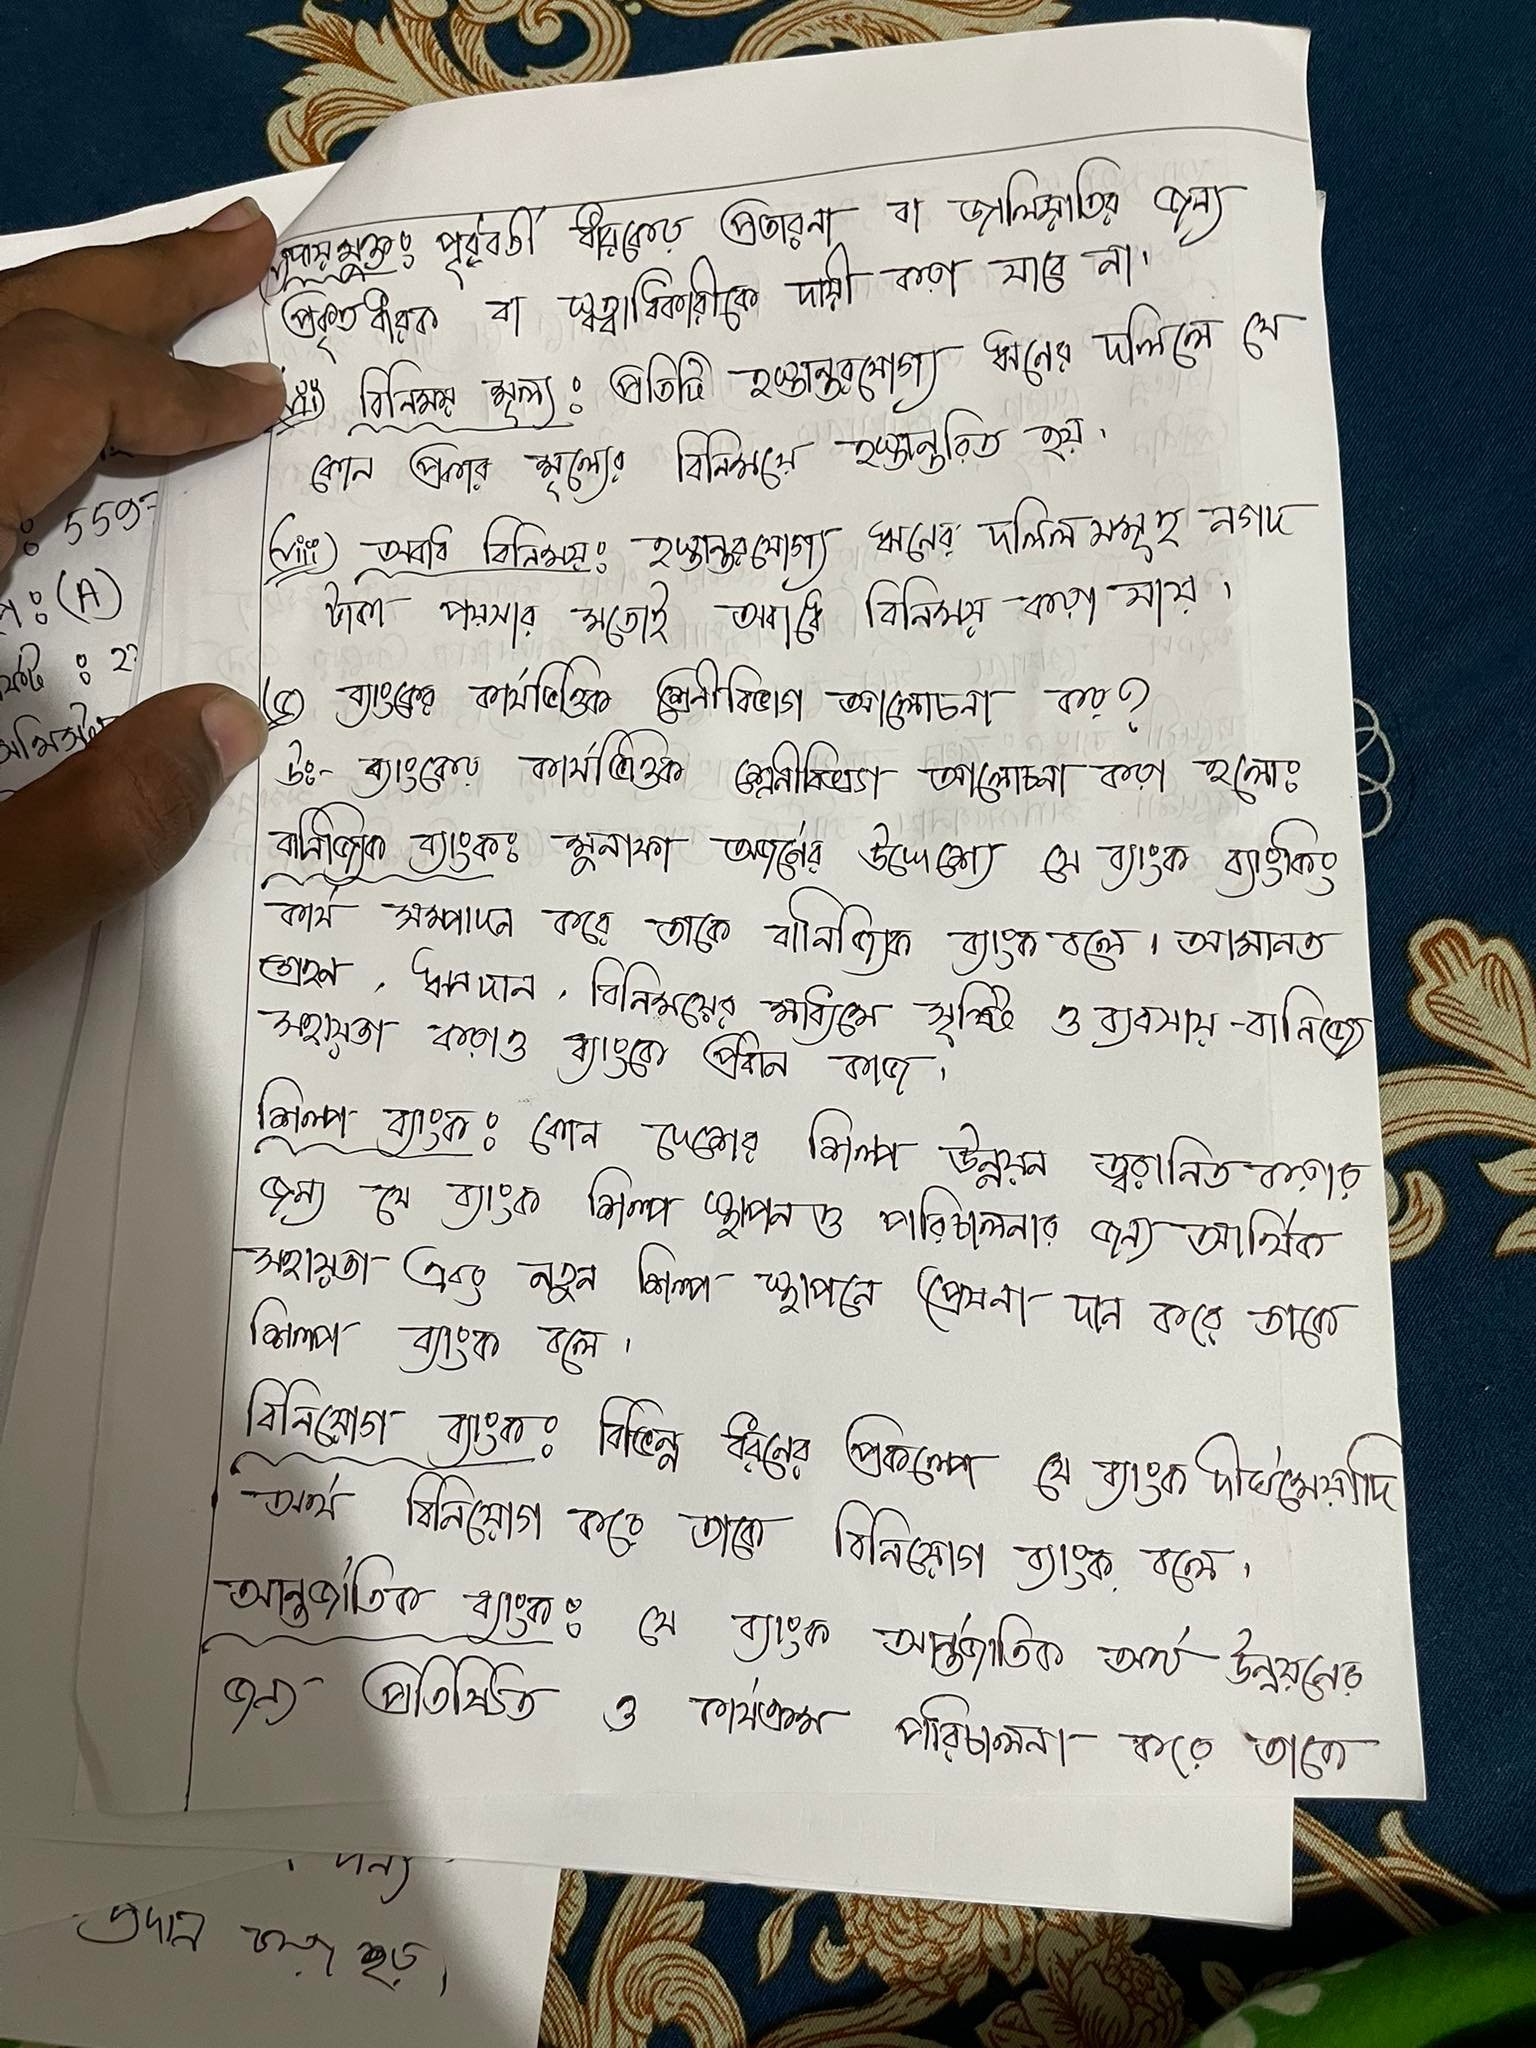 দায়মুক্ত: পূর্ববর্তী ধারকের প্রতারনা বা জালিয়াতির জন্য
প্রকৃত ধারক বা স্বত্বাধিকারীকে দায়ী করা যাবে না।
বিনিময় মূল্য: প্রতিটি হস্তান্তরযোগ্য ঋনের দলিলে যে
কোন প্রকার মূল্যের বিনিময়ে হস্তান্তরিত হয়।
(viii) অবাধ বিনিময়: হস্তান্তরযোগ্য ঋনের দলিল সমূহ নগদ
টাকা পয়সার মতোই অবাধে বিনিময় করা যায়।
ব্যাংকের কার্যভিত্তিক শ্রেনীবিভাগ আলোচনা কর?
উঃ- ব্যাংকের কার্যভিত্তিক শ্রেনীবিভাগ আলোচনা করা হলো:
বানিজ্যিক ব্যাংক: মুনাফা অর্জনের উদ্দেশ্যে যে ব্যাংক ব্যাংকিং
কার্য সম্পাদন করে তাকে বানিজ্যিক ব্যাংক বলে। আমানত
গ্রহন, ঋনদান, বিনিময়ের মাধ্যমে সৃষ্টি ও ব্যবসায়-বানিজ্যে
সহায়তা করাও ব্যাংকে প্রধান কাজ।
শিল্প ব্যাংক: কোন দেশের শিল্প উন্নয়ন ত্বরানিত করার
জন্য যে ব্যাংক শিল্প স্থাপন ও পরিচালনার জন্য আর্থিক
সহায়তা এবং নতুন শিল্প স্থাপনে প্রেষনা দান করে তাকে
শিল্প ব্যাংক বলে।
বিনিয়োগ ব্যাংক: বিভিন্ন ধরনের প্রকল্পে যে ব্যাংক দীর্ঘমেয়াদি
অর্থ বিনিয়োগ করে তাকে বিনিয়োগ ব্যাংক বলে।
আন্তর্জাতিক ব্যাংক: যে ব্যাংক আন্তর্জাতিক অর্থ উন্নয়নের
জন্য প্রতিষ্ঠিত ও কার্যক্রম পরিচালনা করে তাকে
: 559
: (A)
প্রদান করা হয়।